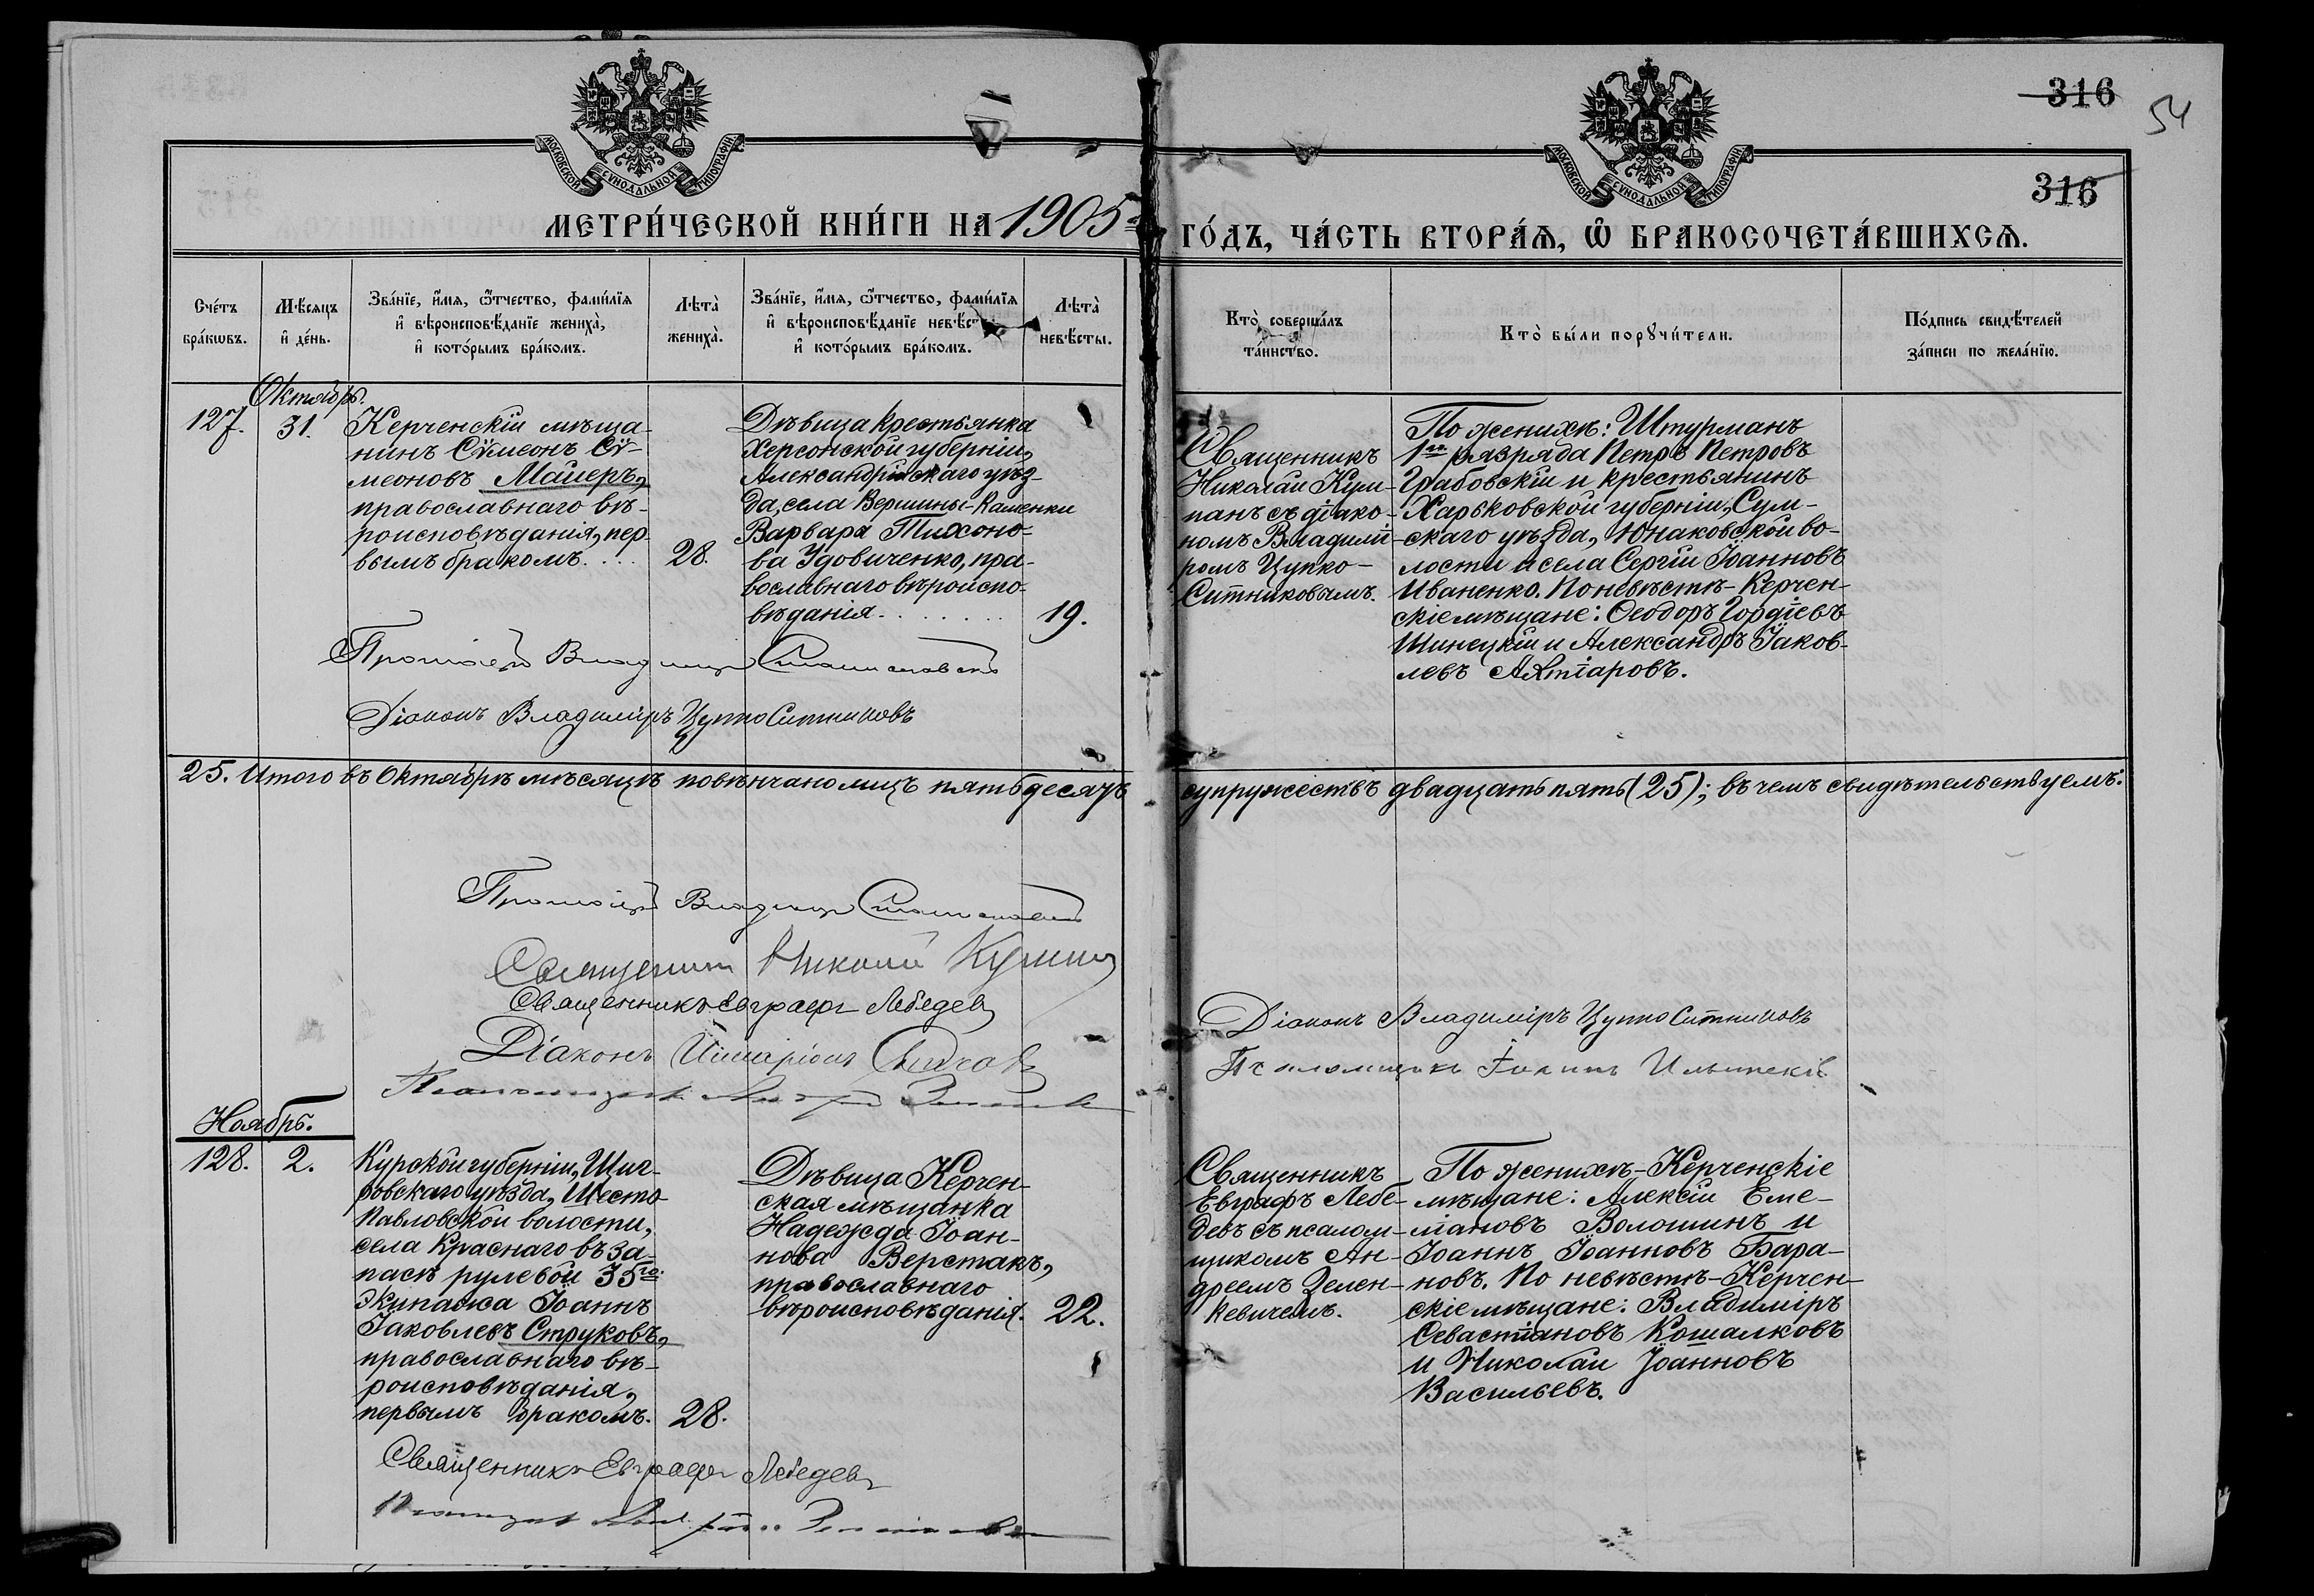 316
54
МОСКОВСКОЙ СѴНОДАЛЬНОЙ ТИПОГРАФІИ
МОСКОВСКОЙ СѴНОДАЛЬНОЙ ТИПОГРАФІИ
316
МЕТРИ́ЧЕСКОЙ КНИ́ГИ НА 1905 ГО́ДЪ, ЧА́СТЬ ВТОРА́Ѧ, Ѡ҆ БРАКОСОЧЕТА́ВШИХСѦ.
Сче́тъ
бра́кѡвъ.
Мѣ́сяцъ
и҆ де́нь.
Зва́нїе, и҆́мя, ѻ҆́тчество, фами́лїя
и҆ вѣроисповѣ́данїе жениха̀,
и҆ кото́рымъ бра́комъ.
Лѣта̀
жениха̀.
Зва́нїе, и҆́мя, ѻ҆́тчество, фами́лїя
и҆ вѣроисповѣ́данїе невѣ́сты
и҆ кото́рымъ бра́комъ.
Лѣта̀
невѣ́сты.
Кто̀ соверша́лъ
та́инство.
Кто̀ бы́ли порꙋчи́тели.
По́дпись свидѣ́телей
за́писи по жела́нїю.
Октябрь.
127.
31.
Керченскій мѣща-
нинъ Сѵмеонъ Сѵ-
меоновъ Майеръ,
православнаго вѣ-
роисповѣданія, пер-
вымъ бракомъ. . . .
28.
Дѣвица крестьянка
Херсонской губерніи,
Александрійскаго уѣз-
да, села Вершины-Каменки
Варвара Тихоно-
ва Удовиченко, пра-
вославнаго вѣроиспо-
вѣданія. . . . . . .
19.
Священникъ
Николай Кум-
панъ съ діако-
номъ Владимі-
ромъ Цупко-
Ситниковымъ.
По женихѣ: Штурманъ
1го разряда Петръ Петровъ
Грабовскій и крестьянинъ
Харьковской губерніи, Сум-
скаго уѣзда, Юнаковской во-
лости и села Сергій Іоанновъ
Иваненко. По невѣстѣ- Керчен-
скіе мѣщане: Ѳеодоръ Гордіевъ
Шинецкій и Александръ Іаков-
левъ Ахтіаровъ.
Протоіерей Владимиръ
Діаконъ Владиміръ Цупко Ситниковъ
25. Итого въ Октябрѣ мѣсяцѣ повѣнчано лицъ пятьдесятъ супружествъ двадцать пять (25); въ чемъ свидѣтельствуемъ:
Протоіерей Владимиръ
Священникъ Николай Кумпанъ
Священникъ Евграфъ Лебедевъ
Діаконъ
Діаконъ Владиміръ Цупко Ситниковъ
Псаломщикъ Іоаннъ Ильинскій
Ноябрь.
128.
2.
Курской губерніи, Щиг-
ровскаго уѣзда, Шесто-
Павловской волости,
села Краснаго въ за-
пасѣ рулевой 35го
экипажа Іоаннъ
Іаковлевъ Струковъ,
православнаго вѣ-
роисповѣданія,
первымъ бракомъ.
28.
Дѣвица Керчен-
ская мѣщанка
Надежда Іоан-
нова Верстакъ,
православнаго
вѣроисповѣданія.
22.
Священникъ
Евграфъ Лебе-
девъ съ псалом-
щикомъ Ан-
дреемъ Зелен-
кевичемъ.
По женихѣ-Керченскіе
мѣщане: Алексій Еме-
ліановъ Волошинъ и
Іоаннъ Іоанновъ Бара-
новъ. По невѣстѣ-Керчен-
скіе мѣщане: Владиміръ
Севастіановъ Кошалковъ
и Николай Іоанновъ
Васильевъ.
Священникъ Евграфъ Лебедевъ